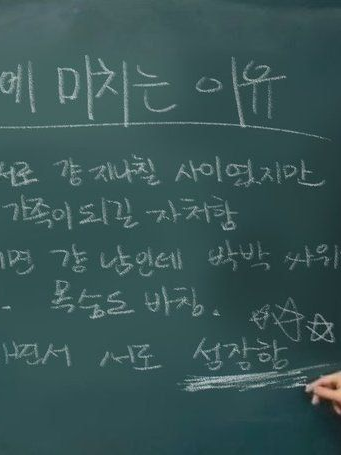 에 미치는 이유
서로 걍 지나칠 사이였지만
가족이 되길 자처함
면 걍 남인데 박박 싸워
목숨도 바침.
면서 서로 성장함